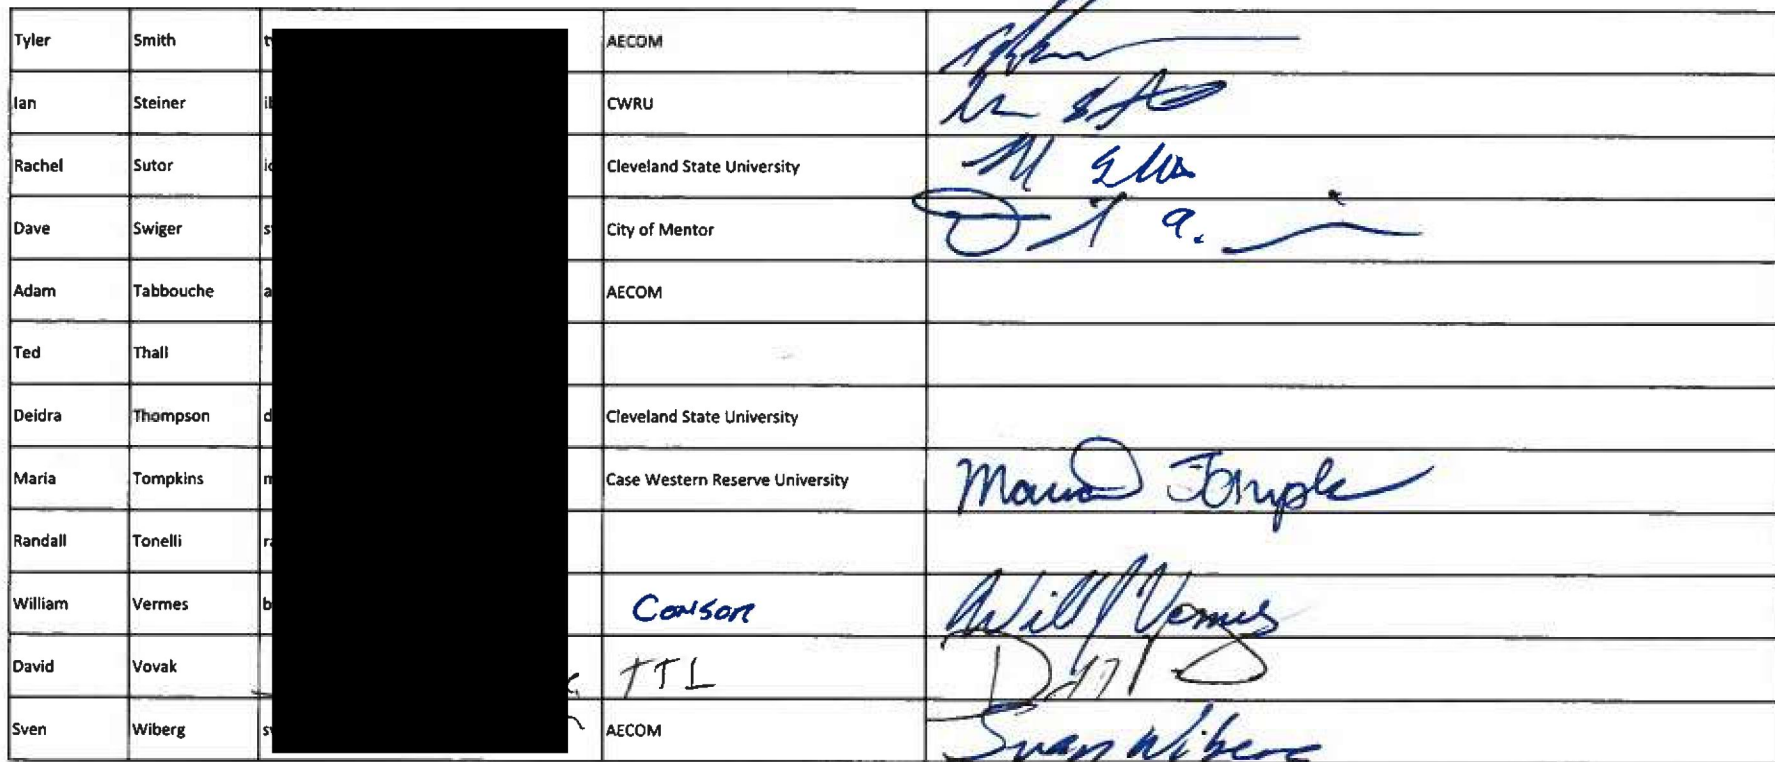 Tyler Smith t AECOM
Ian Steiner il CWRU
Rachel Sutor ic Cleveland State University
Dave Swiger s City of Mentor
Adam Tabbouche a AECOM
Ted Thall
Deidra Thompson d Cleveland State University
Maria Tompkins m Case Western Reserve University Maria Tompk
Randall Tonelli ra
William Vermes b Conson Will Vermes
David Vovak TTL
Sven Wiberg s AECOM Sven Wiberg